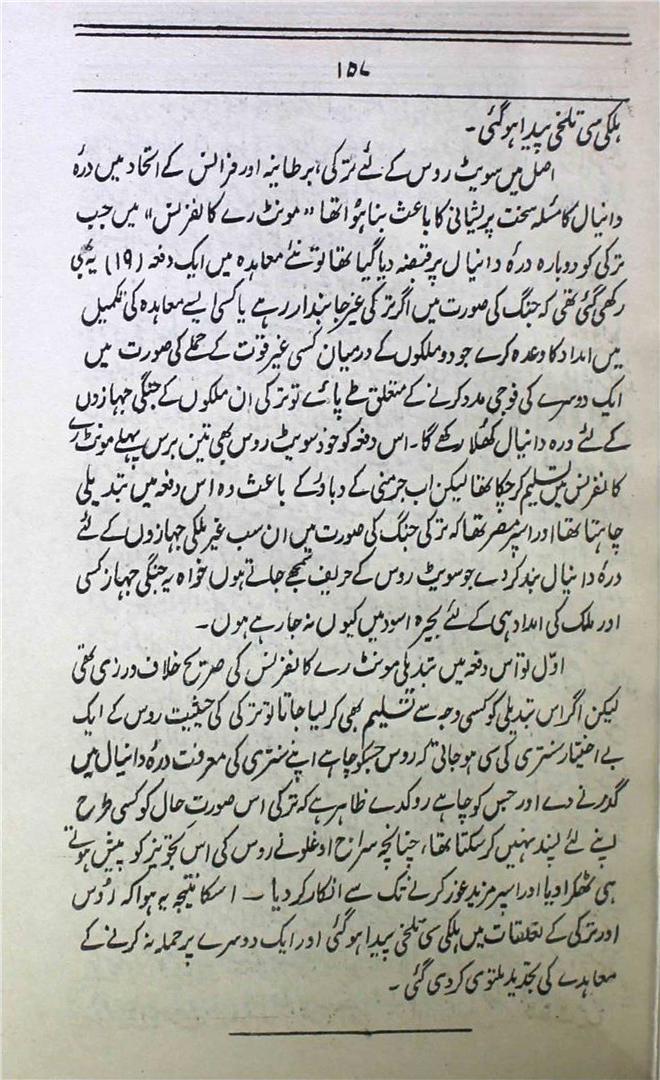 ۱۵۷
ہلکی سی تلخی پیدا ہوگئی۔
اصل میں سویٹ روس کے لئے ترکی، برطانیہ اور فرانس کے اتحاد میں درۂ
دانیال کا مسٔلہ سخت پریشانی کا باعث بنا ہوا تھا "مونٹ رے کانفرنس" میں جب
ترکی کو دوبارہ درۂ دانیال پر قبضہ دیا گیا تھا تو نئے معاہدہ میں ایک دفعہ (۱۹) یہ بھی
رکھی گئی تھی کہ جنگ کی صورت میں اگر ترکی غیر جانبدار رہے یا کسی ایسے معاہدہ کی تکمیل
میں امداد کا وعدہ کرے جو دو ملکوں کے درمیان کسی غیر قوت کے حملے کی صورت میں
ایک دوسرے کی فوجی مدد کرنے کے متعلق طے پائے تو ترکی ان ملکوں کے جنگی جہازوں
کے لئے درہ دانیال کھُلا رکھے گا۔ اس دفعہ کو خود سویٹ روس بھی تین برس پہلے مونٹ رے
کانفرنس میں تسلیم کرچکا تھا لیکن اب جرمنی کے دباؤ کے باعث وہ اس دفعہ میں تبدیلی
چاہتا تھا اور اسپر مصر تھا کہ ترکی جنگ کی صورت میں ان سب غیر ملکی جہازوں کے لئے
درۂ دانیال بند کردے جو سویٹ روس کے حریف سمجھے جاتے ہوں خواہ یہ جنگی جہاز کسی
اور ملک کی امداد ہی کے لئے بحیرہ اسود میں کیوں نہ جارہے ہوں۔
اوّل تو اس دفعہ میں تبدیلی مونٹ رے کانفرنس کی صریح خلاف ورزی تھی
لیکن اگر اس تبدیلی کو کسی وجہ سے تسلیم بھی کرلیا جاتا تو ترکی کی حیثیت روس کے ایک
بے اختیار سنتری کی سی ہوجاتی کہ روس جسکو چاہے اپنے سنتری کی معرفت درۂ دانیال میں
گذرنے دے اور جس کو چاہے روکدے ظاہر ہے کہ ترکی اس صورت حال کو کسی طرح
اپنے لئے پسند نہیں کرسکتا تھا، چنانچہ سراج اوغلو نے روس کی اس تجویز کو پیش ہوتے
ہی ٹھکرا دیا اور اسپر مزید غور کرنے تک سے انکار کردیا ۔ اسکا نتیجہ یہ ہوا کہ روس
اور ترکی کے تعلقات میں ہلکی سی تلخی پیدا ہوگئی اور ایک دوسرے پر حملہ نہ کرنے کے
معاہدے کی تجدید ملتوی کردی گئی۔